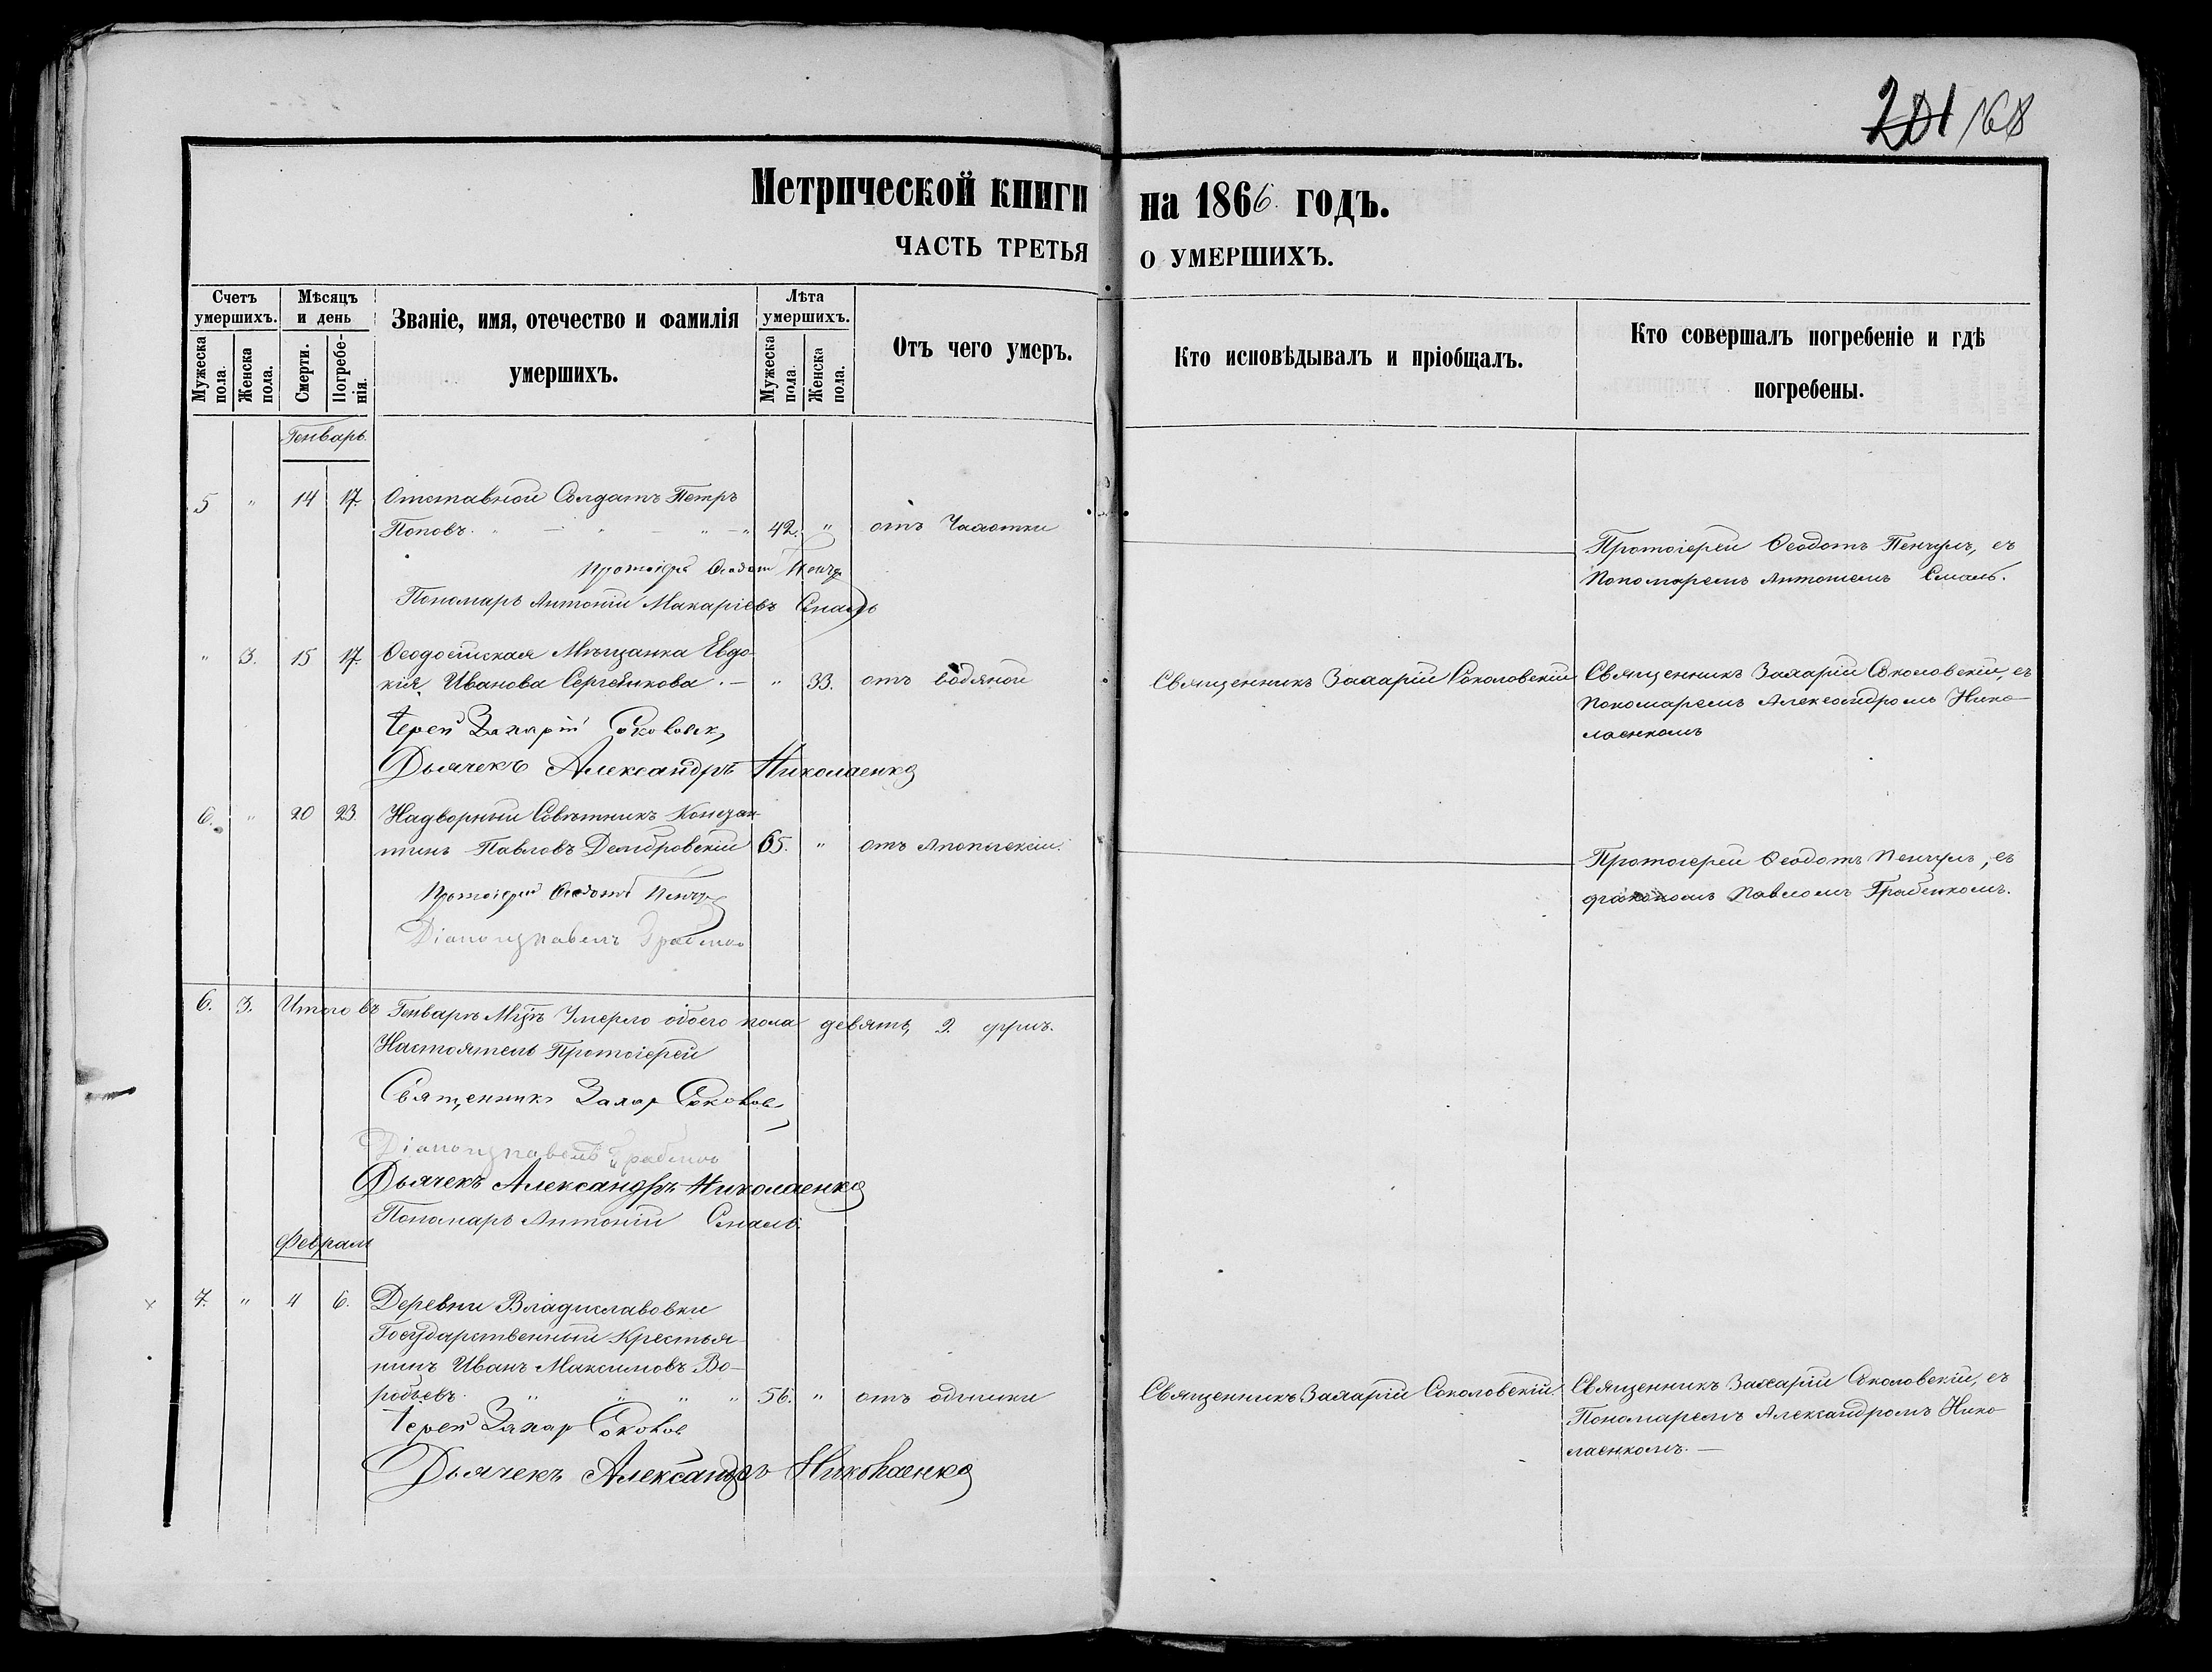 201 168
Метрической книги на 1866 годъ.
ЧАСТЬ ТРЕТЬЯ О УМЕРШИХЪ.
Счетъ умершихъ.
Мужеска пола.
Женска пола.
Мѣсяцъ и день
Смерти.
Погребенія.
Званіе, имя, отечество и фамилія умершихъ.
Лѣта умершихъ.
Мужеска пола.
Женска пола.
Отъ чего умеръ.
Кто исповѣдывалъ и пріобщалъ.
Кто совершалъ погребеніе и гдѣ погребены.
Генварь.
5 " 14 17. Отставной Солдатъ Петръ
Поповъ. " — " — " — " 42. " отъ Чахотки
Протоіерей Ѳеодотъ Пенчулъ, съ
Пономаремъ Антоніемъ
Протоіер Ѳеодот Пенчу
Пономарь Антоній Макаріевъ
" 3. 15 17. Ѳеодосійская Мѣщанка Евдо-
кія Иванова . — " 33. отъ водяной Священникъ Захарій Соколовскій
Священникъ Захарій Соколовскій, съ
Пономаремъ Александромъ Нико-
лаенкомъ
Іерей Захарій
Дьячекъ Александръ Николаенко
6. " 20 23. Надворный Совѣтникъ Констан-
тинъ Павловъ Домбровскій 65. " отъ Апоплексіи.
Протоіерей Ѳеодотъ Пенчулъ, съ
діакономъ Павломъ Грабенкомъ.
Протоіерей Ѳеодотъ Пенчу
Діаконъ Павелъ
6. 3. Итого въ Генварѣ Мцѣ Умерло обоего пола девять, 9.
Настоятель Протоіерей
Священникъ Захар
Діаконъ Павелъ
Дьячекъ Александръ Николаенко
Пономарь Антоній
Февраль
7. " 4 6. Деревни Владиславовки
Государственный Крестья-
нинъ Иванъ Максимовъ Во-
робьевъ. " " " " 56. " отъ одышки Священникъ Захарій Соколовскій
Священникъ Захарій Соколовскій, съ
Пономаремъ Александромъ Нико-
лаенкомъ. —
Іерей Захар
Дьячекъ Александръ Николаенко